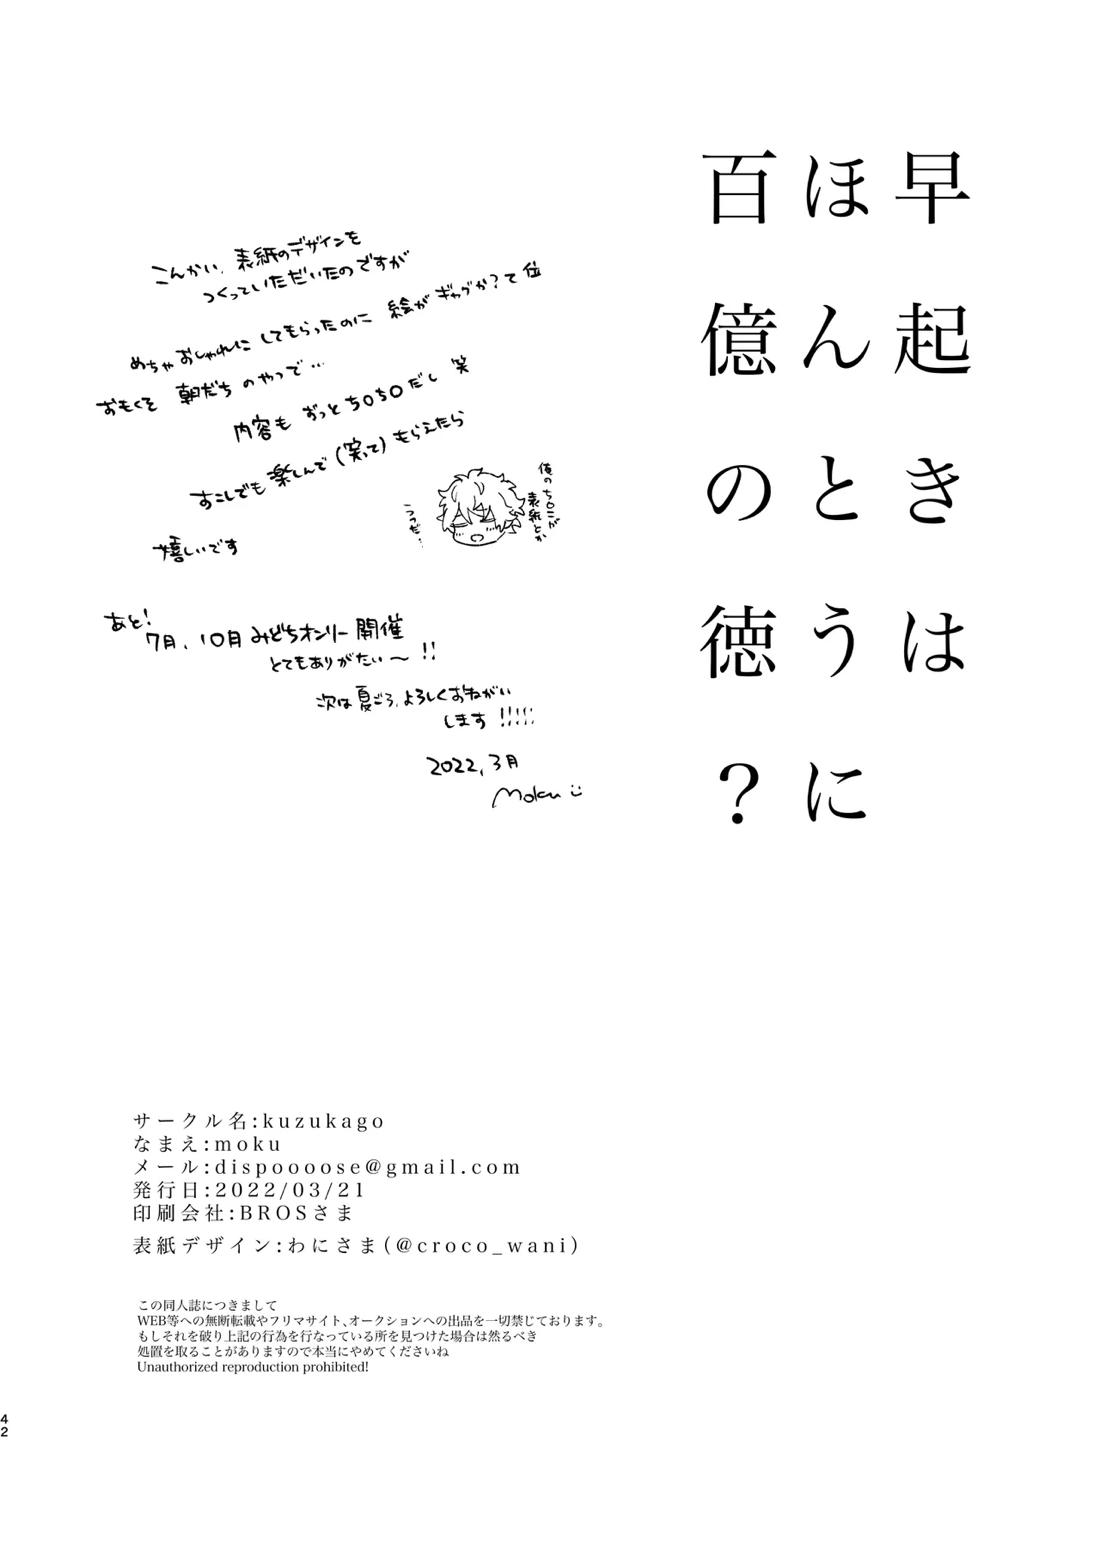 早起きは
ほんとうに
百億の徳？
こんかい、表紙のデザインを
つくっていただいたのですが
めちゃおしゃれにしてもらったのに 絵がギャグか？て位
おもくそ 朝だち のやつで…
内容も ずっと ち〇ち〇だし 笑
すこしでも楽しんで(笑って)もらえたら
嬉しいです
俺のち〇こが
表紙とか
うつだ…
あと！
7月、10月 みどちオンリー 開催
とてもありがたい〜!!
次は夏ごろ、よろしくおねがい
します!!!!!
2022,3月
moku
サークル名:kuzukago
なまえ:moku
メール:dispoooose@gmail.com
発行日:2022/03/21
印刷会社:BROSさま
表紙デザイン:わにさま(@croco_wani)
この同人誌につきまして
WEB等への無断転載やフリマサイト、オークションへの出品を一切禁じております。
もしそれを破り上記の行為を行なっている所を見つけた場合は然るべき
処置を取ることがありますので本当にやめてくださいね
Unauthorized reproduction prohibited!
42